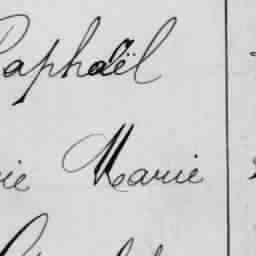 Raphaël
ie Marie